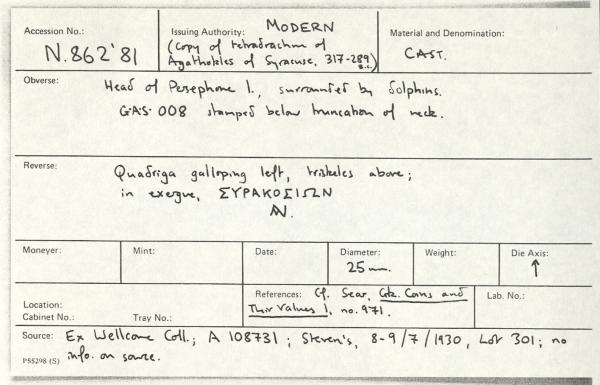 Accession No.:
N.862'81
Issuing Authority: MODERN
(Copy of tetradrachm of
Agathokles of Syracuse, 317-289
B.C.)
Material and Denomination:
CAST.
Obverse:
Head of Persephone l., surrounded by dolphins.
G·A·S· 008 stamped below truncation of neck.
Reverse:
Quadriga galloping left, triskeles above;
in exergue, ΣΥΡΑΚΟΣΙΩΝ
Moneyer:
Mint:
Date:
Diameter:
25mm.
Weight:
Die Axis:
↑
Location:
Cabinet No.:
Tray No.:
References: Cf. Sear, Gk. Coins and
Their Values I, no. 971.
Lab. No.:
Source: Ex Wellcome Coll.; A 108731; Steven's, 8-9/7/1930, Lot 301; no
info. on source.
P55298 (S)